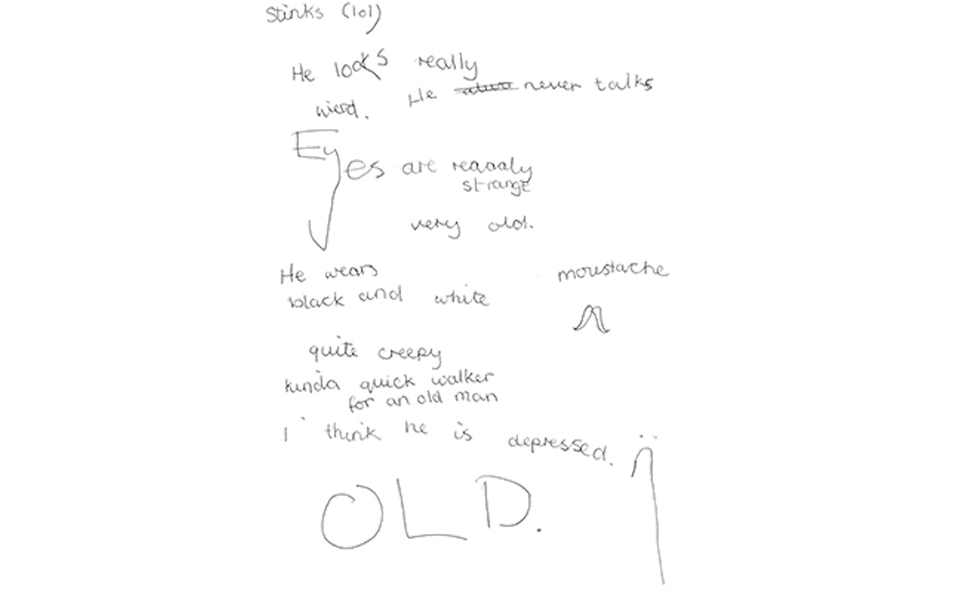 Stinks (lol)
He looks really
wierd. He never talks
Eyes are reaaaly
strange
very old.
He wears
black and white
moustache
quite creepy
kinda quick walker
for an old man
I think he is depressed.
OLD.